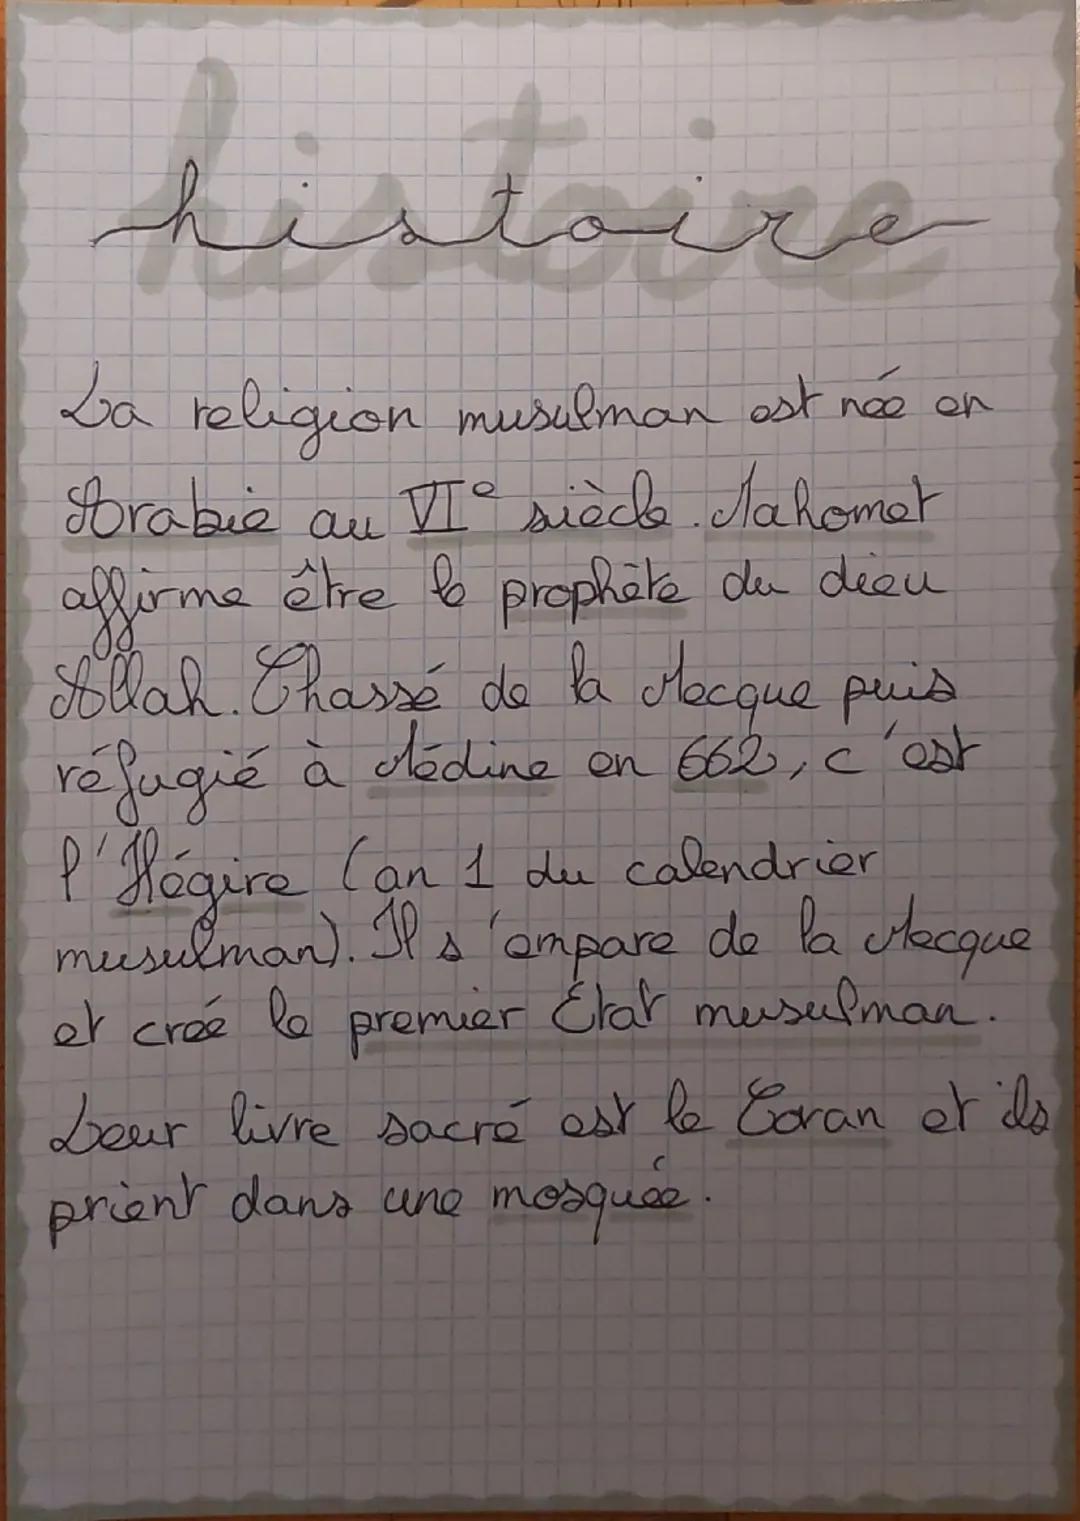 histoire
La religion musulman est née en
Arabie au VIe siècle. Mahomet
affirme être le prophète du dieu
Allah. Chassé de la Mecque puis
réfugié à Médine en 662, c'est
l'Hégire (an 1 du calendrier
musulman). Il s'empare de la Mecque
et créé le premier État musulman.
Leur livre sacré est le Coran et ils
prient dans une mosquée.